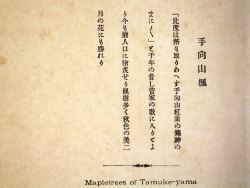 手向山楓
「此度は幣も取りあへず手向山紅葉の錦神の
まに〳〵」と千年の昔し菅家の歌に入りてよ
り今も猶人口に膾炙せり風趣多く秋色の美二
月の花にも勝れり
Mapletrees of Tamuke-yama